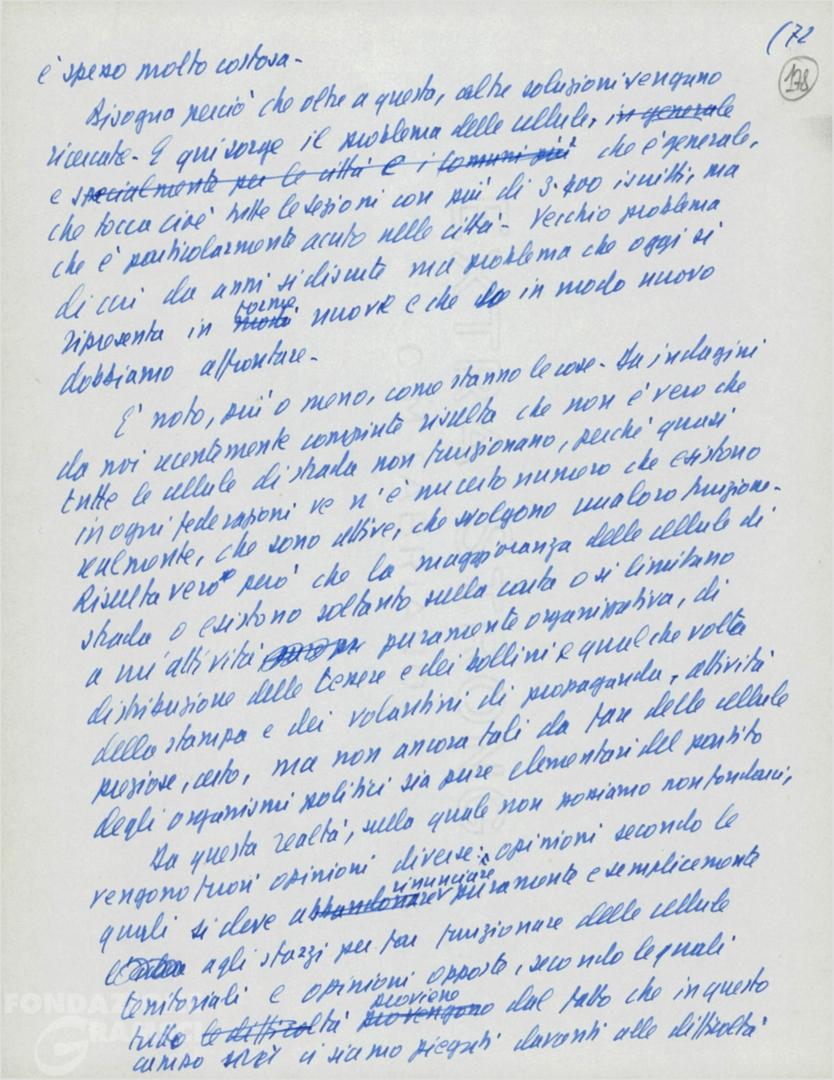 (72
178
è spesso molto costosa-
Bisogna perciò che oltre a questa, altre soluzioni vengano
ricercate- E qui sorge il problema delle cellule, in generale
e specialmente per le città e i comuni più che è generale,
che tocca cioè tutte le sezioni con più di 3-400 iscritti, ma
che è particolarmente acuto nelle città- Vecchio problema
di cui da anni si discute ma problema che oggi si
forme
ripresenta in modi nuove e che in modo nuovo
dobbiamo affrontare-
E' noto, più o meno, come stanno le cose- Da indagini
da noi recentemente compiute risulta che non è vero che
tutte le cellule di strada non funzionano, perché quasi
in ogni federazioni ve n'è un certo numero che esistono
realmente, che sono attive, che svolgono una loro funzione-
Risulta vero però che la maggioranza delle cellule di
strada o esistono soltanto sulla carta o si limitano
a un'attività puramente organizzativa, di
distribuzione delle tessere e dei bollini e qualche volta
della stampa e dei volantini di propaganda, attività
preziose, certo, ma non ancora tali da fare delle cellule
degli organismi politici sia pure elementari del partito
Da questa realtà, sulla quale non possiamo non fondarci,
vengono fuori opinioni diverse: opinioni secondo le
rinunciare
quali si deve abbandonare puramente e semplicemente
agli sforzi per far funzionare delle cellule
territoriali e opinioni opposte, secondo le quali
proviene
tutto le difficoltà provengono dal fatto che in questo
campo ci siamo piegati davanti alle difficoltà
FONDAZIONE
GRAMSCI